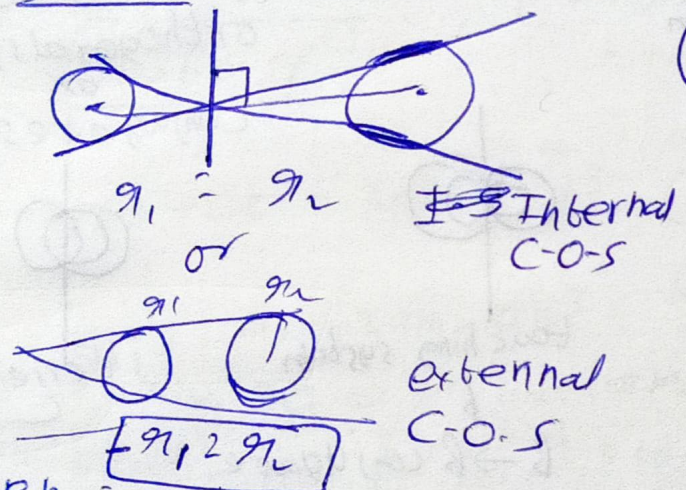 r₁ : r₂
Internal
C-O-S
or
r₁ r₂
external
C-O.S
-r₁ : r₂